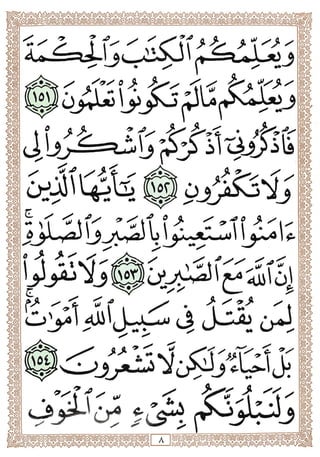 وَيُعَلِّمُكُمُ ٱلْكِتَٰبَ وَٱلْحِكْمَةَ
وَيُعَلِّمُكُم مَّا لَمْ تَكُونُوا۟ تَعْلَمُونَ ١٥١
فَٱذْكُرُونِىٓ أَذْكُرْكُمْ وَٱشْكُرُوا۟ لِى
وَلَا تَكْفُرُونِ ١٥٢ يَٰٓأَيُّهَا ٱلَّذِينَ
ءَامَنُوا۟ ٱسْتَعِينُوا۟ بِٱلصَّبْرِ وَٱلصَّلَوٰةِ ۚ
إِنَّ ٱللَّهَ مَعَ ٱلصَّٰبِرِينَ ١٥٣ وَلَا تَقُولُوا۟
لِمَن يُقْتَلُ فِى سَبِيلِ ٱللَّهِ أَمْوَٰتٌۢ ۚ
بَلْ أَحْيَآءٌ وَلَٰكِن لَّا تَشْعُرُونَ ١٥٤
وَلَنَبْلُوَنَّكُم بِشَىْءٍ مِّنَ ٱلْخَوْفِ
٨